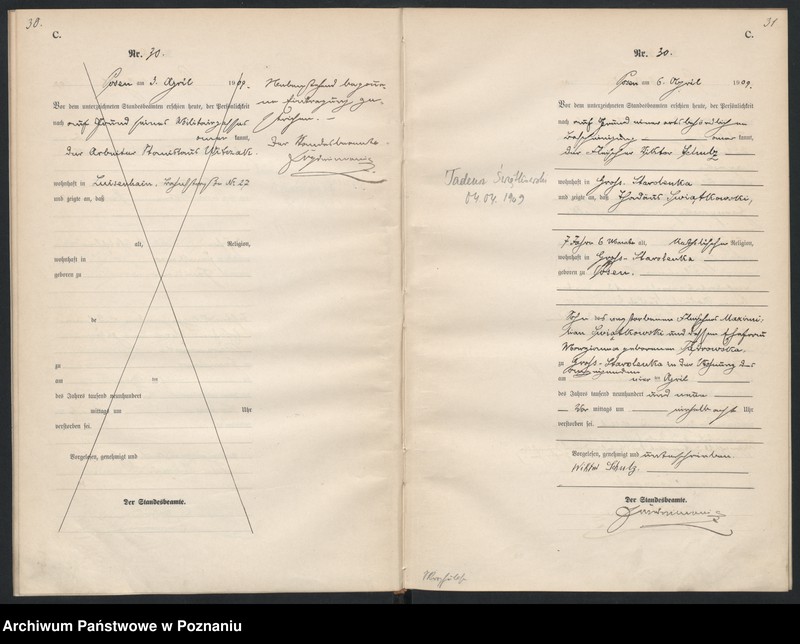 30.
C.
Nr. 30.
Posen am 3. April 1909.
Vor dem unterzeichneten Standesbeamten erschien heute, der Persönlichkeit
nach auf Grund seines Militärpasses
kannt,
der Arbeiter Stanislaus
wohnhaft in Luisenhain, Nr. 27
und zeigte an, daß
alt, Religion,
wohnhaft in
geboren zu
de
zu
am der
des Jahres tausend neunhundert
mittags um Uhr
verstorben sei.
Vorgelesen, genehmigt und
Der Standesbeamte.
Nebenstehend begonne-
ne Eintragung ge-
strichen. –
Der Standesbeamte.
31
C.
Nr. 30.
Posen am 6. April 1909.
Vor dem unterzeichneten Standesbeamten erschien heute, der Persönlichkeit
nach auf Grund einer ortsbehördlichen
Bescheinigung kannt,
der Fleischer Viktor Schulz
wohnhaft in Groß-Starolenka
und zeigte an, daß Thadäus Swiątkowski,
7 Jahre 6 Monate alt, katholischer Religion,
wohnhaft in Groß-Starolenka
geboren zu Posen.
Sohn des verstorbenen Fleischers Maximi-
lian Swiątkowski und dessen Ehefrau
geborenen
zu Groß-Starolenka in der Wohnung des
am vier ten April
des Jahres tausend neunhundert und neun
Vor mittags um acht Uhr
verstorben sei.
Vorgelesen, genehmigt und unterschrieben.
Wiktor Schulz.
Der Standesbeamte.
Tadeusz Świątkowski
04.04.1909
Archiwum Państwowe w Poznaniu